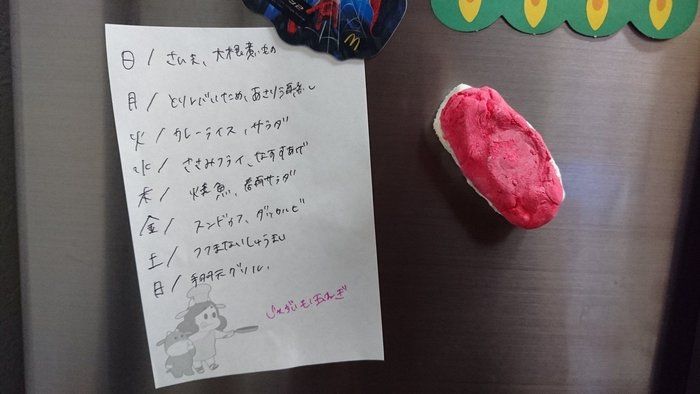 日/ さんま、大根煮もの
月/ とりレバいため、あさり酒蒸し
火/ カレーライス、サラダ
水/ ささみフライ、なすあげ
木/ 焼魚、春雨サラダ
金/ スンドゥブ、ダッカルビ
土/ つつまないしゅうまい
日/ 手羽元グリル
じゃがいも・玉ねぎ